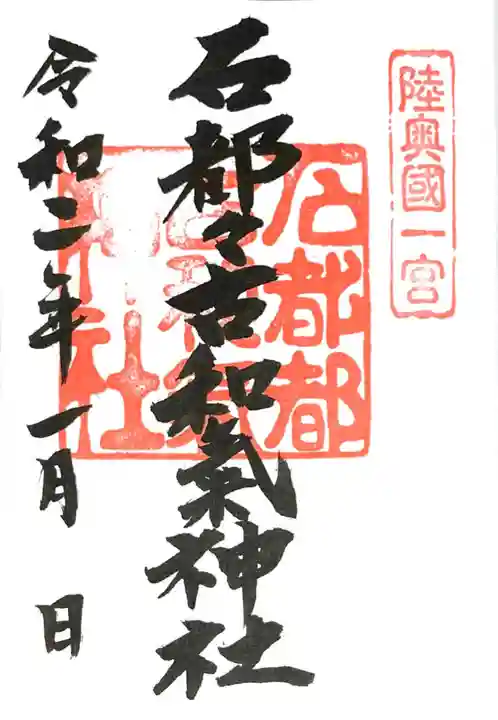 陸奥國一宮
石都々古和氣神社
石都都古和氣神社
令和二年一月 日